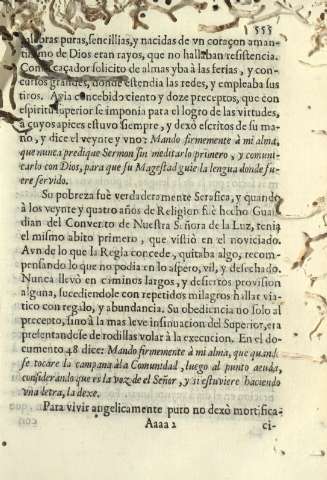 555
labras puras, sencillas, y nacidas de vn coraçon aman-
tissimo de Dios eran rayos, que no hallaban resistencia.
Como caçador solicito de almas yba à las ferias, y con-
cursos grandes, donde estendia las redes, y empleaba sus
tiros. Avia concebido ciento y doze preceptos, que con
espiritu superior se imponia para el logro de las virtudes,
à cuyos apices estuvo siempre, y dexò escritos de su ma-
no, y dice el veynte y vno: Mando firmemente à mi alma,
que nunca predique Sermon sin meditarlo primero, y comuni-
carlo con Dios, para que su Magestad guie la lengua donde fue-
re servido.
Su pobreza fuè verdaderamente Serafica, y quando
à los veynte y quatro años de Religion fuè hecho Guar-
dian del Convento de Nuestra Señora de la Luz, tenia
el mismo abito primero, que vistiò en el noviciado.
Avn de lo que la Regla concede, quitaba algo, recom-
pensando lo que no podia en lo aspero, vil, y desechado.
Nunca llevò en caminos largos, y desiertos provision
alguna, sucediendole con repetidos milagros hallar via-
tico con regalo, y abundancia. Su obediencia no solo al
precepto, sino à la mas leve insinuacion del Superior, era
presentandose de rodillas volar à la execucion. En el do-
cumento 48 dice: Mando firmemente à mi alma, que quando
se tocare la campana à la Comunidad, luego al punto acuda,
considerando que es la voz de el Señor, y si estuviere haciendo
vna letra, la dexe.
Para vivir angelicamente puro no dexò mortifica-
Aaaa 2
ci-